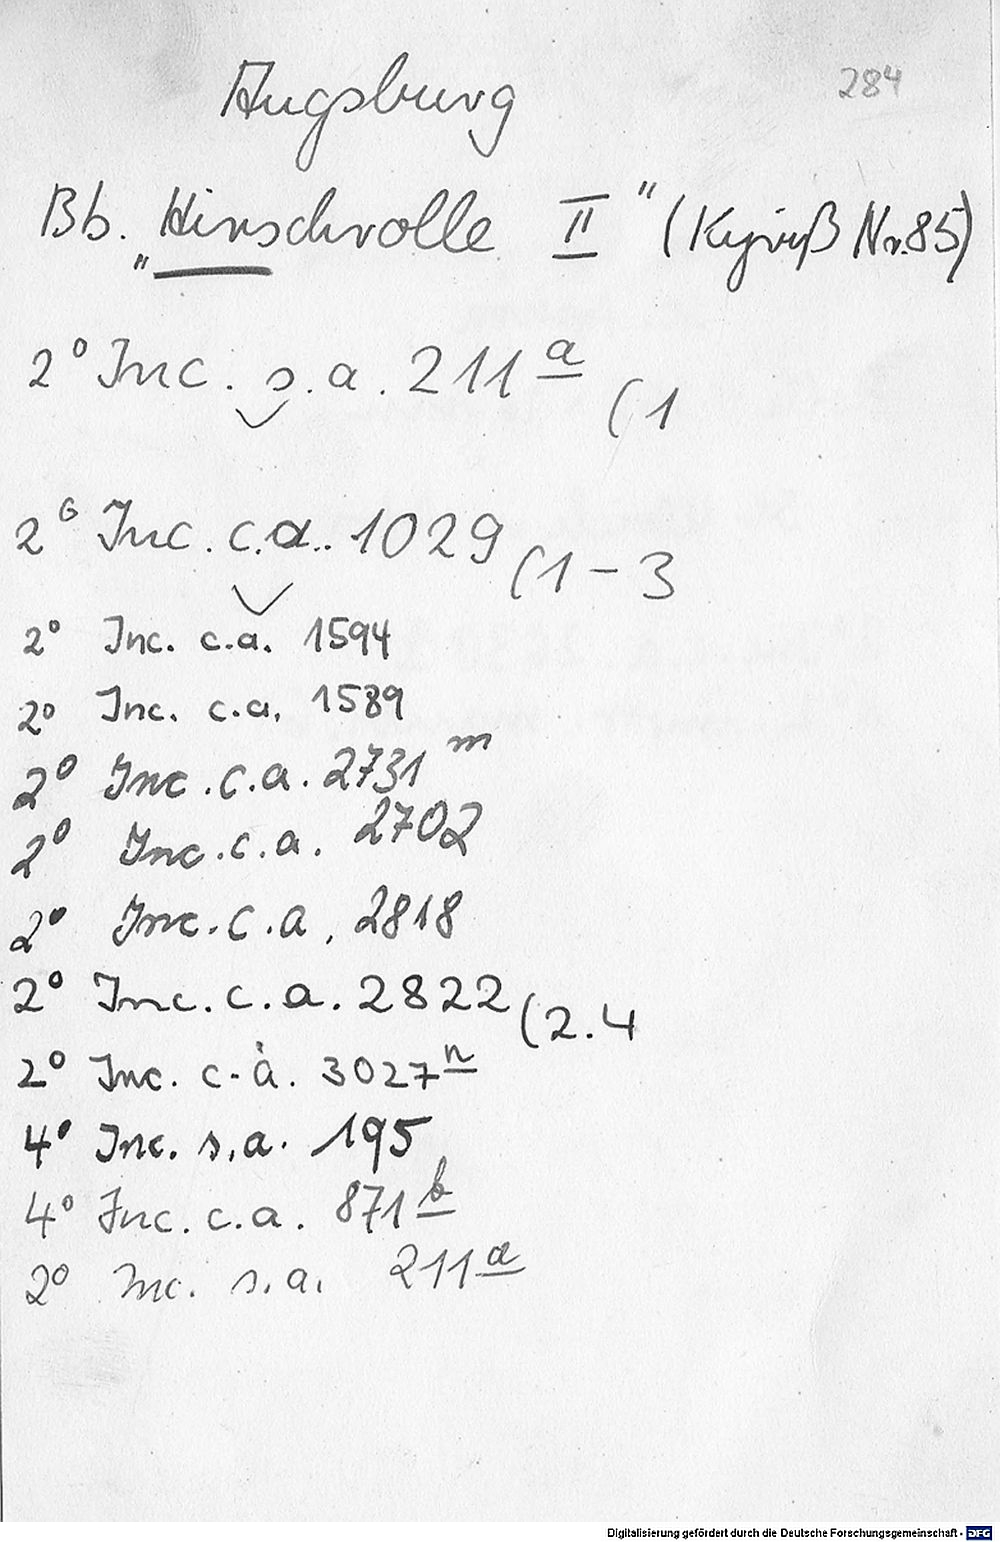 284
Augsburg
Bb. „Hirschrolle II" (Kyriß Nr. 85)
2° Inc. s.a. 211a (1
2° Inc. c.a. 1029 (1-3
2° Inc. c.a. 1594
2° Inc. c.a. 1589
2° Inc. c.a. 2731 m
2° Inc. c.a. 2702
2° Inc. c.a. 2818
2° Inc. c.a. 2822 (2.4
2° Inc. c.a. 3027n
4° Inc. s.a. 195
4° Inc. c.a. 871b
2° Inc. s.a. 211a
Digitalisierung gefördert durch die Deutsche Forschungsgemeinschaft - DFG